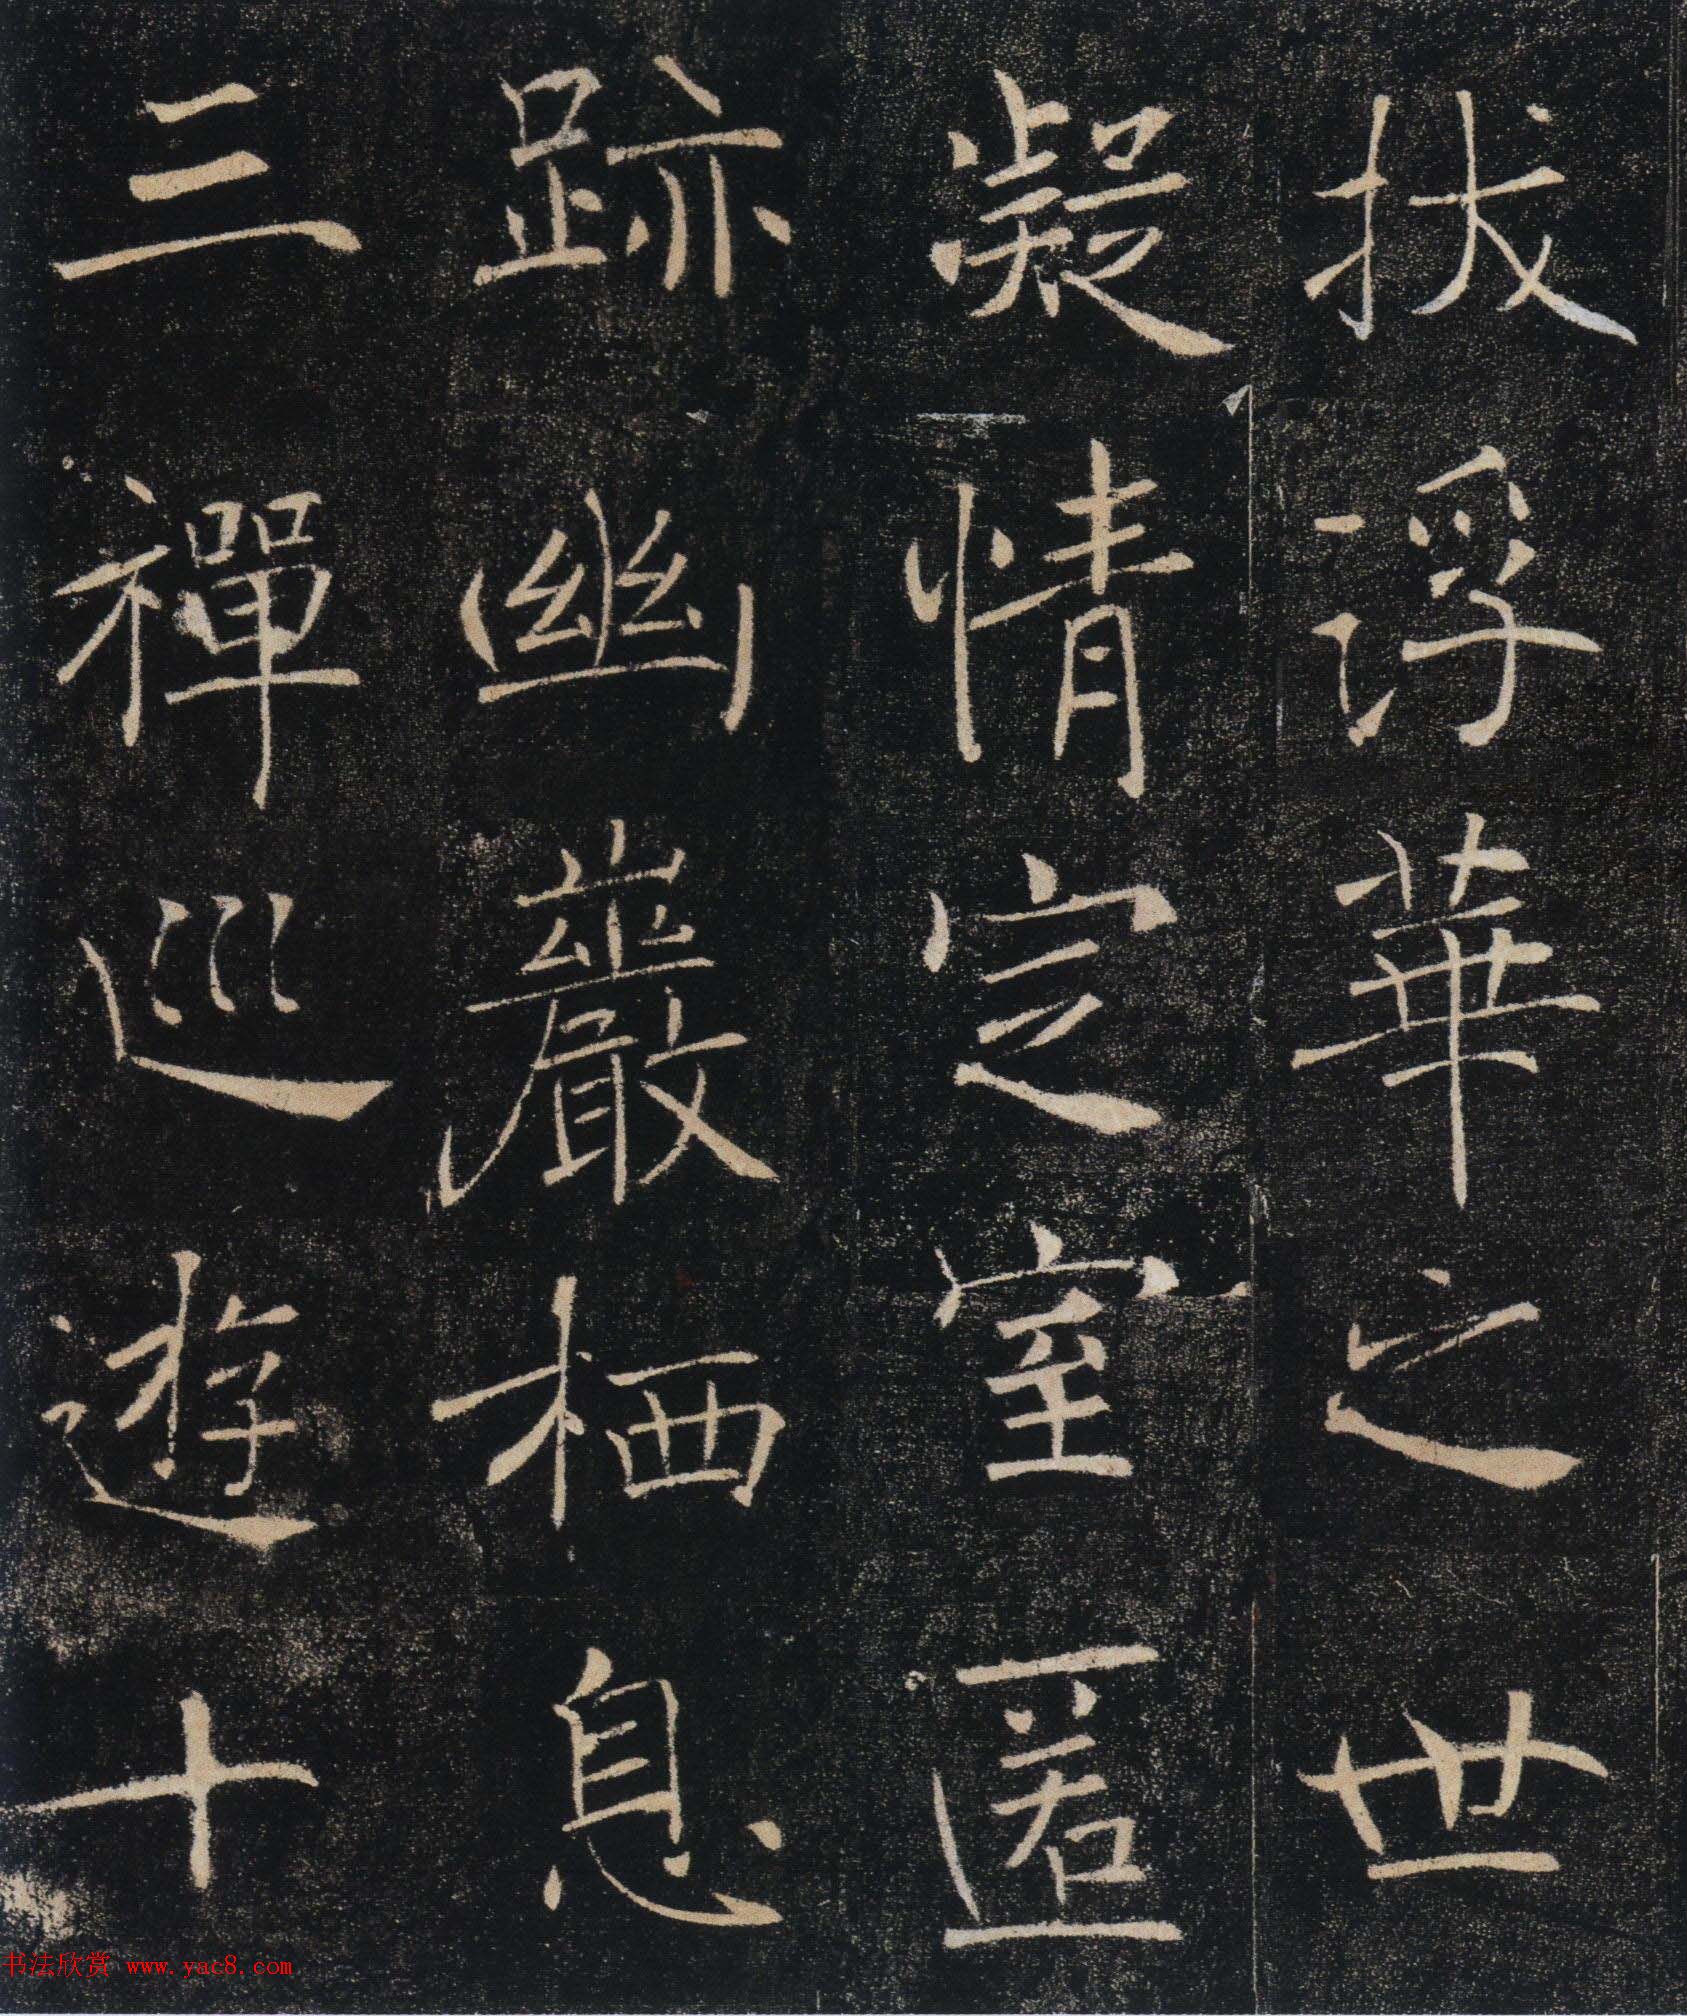 拔浮華之世
凝情定室匿
跡幽巖栖息
三禪巡遊十
书法欣赏 www.yac8.com